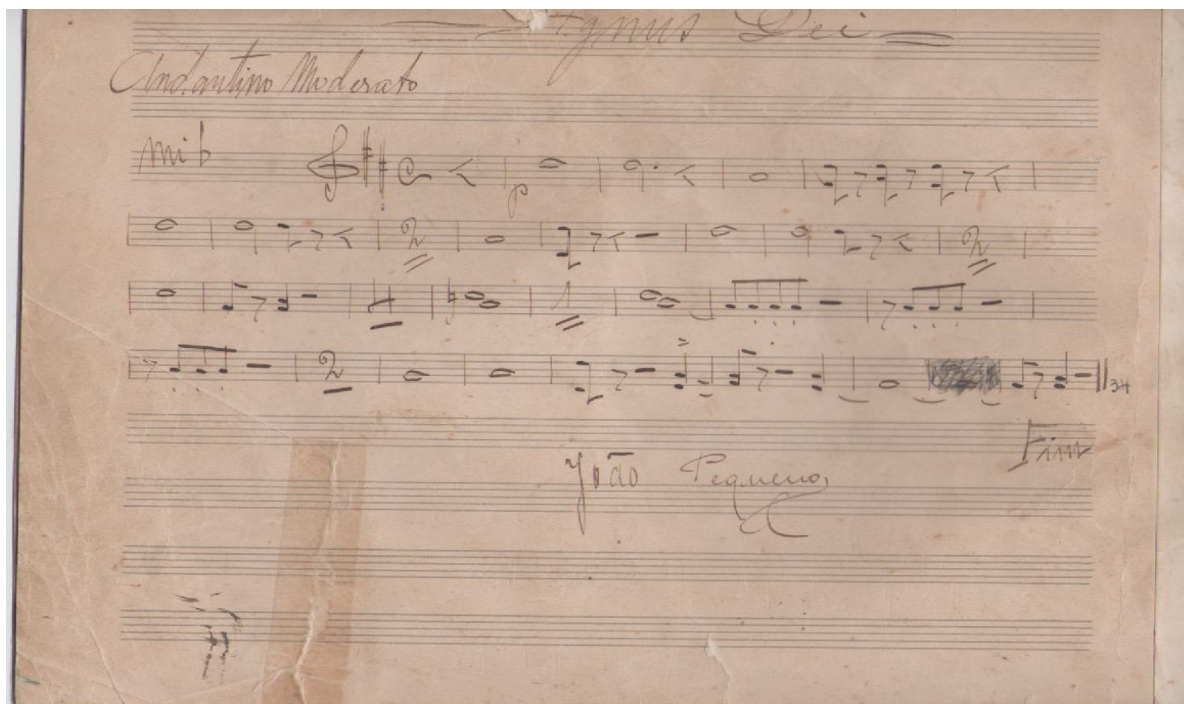 Agnus Dei
Andantino Moderato
mi b
p
2
2
1
2
34
Fim
João Pequeno